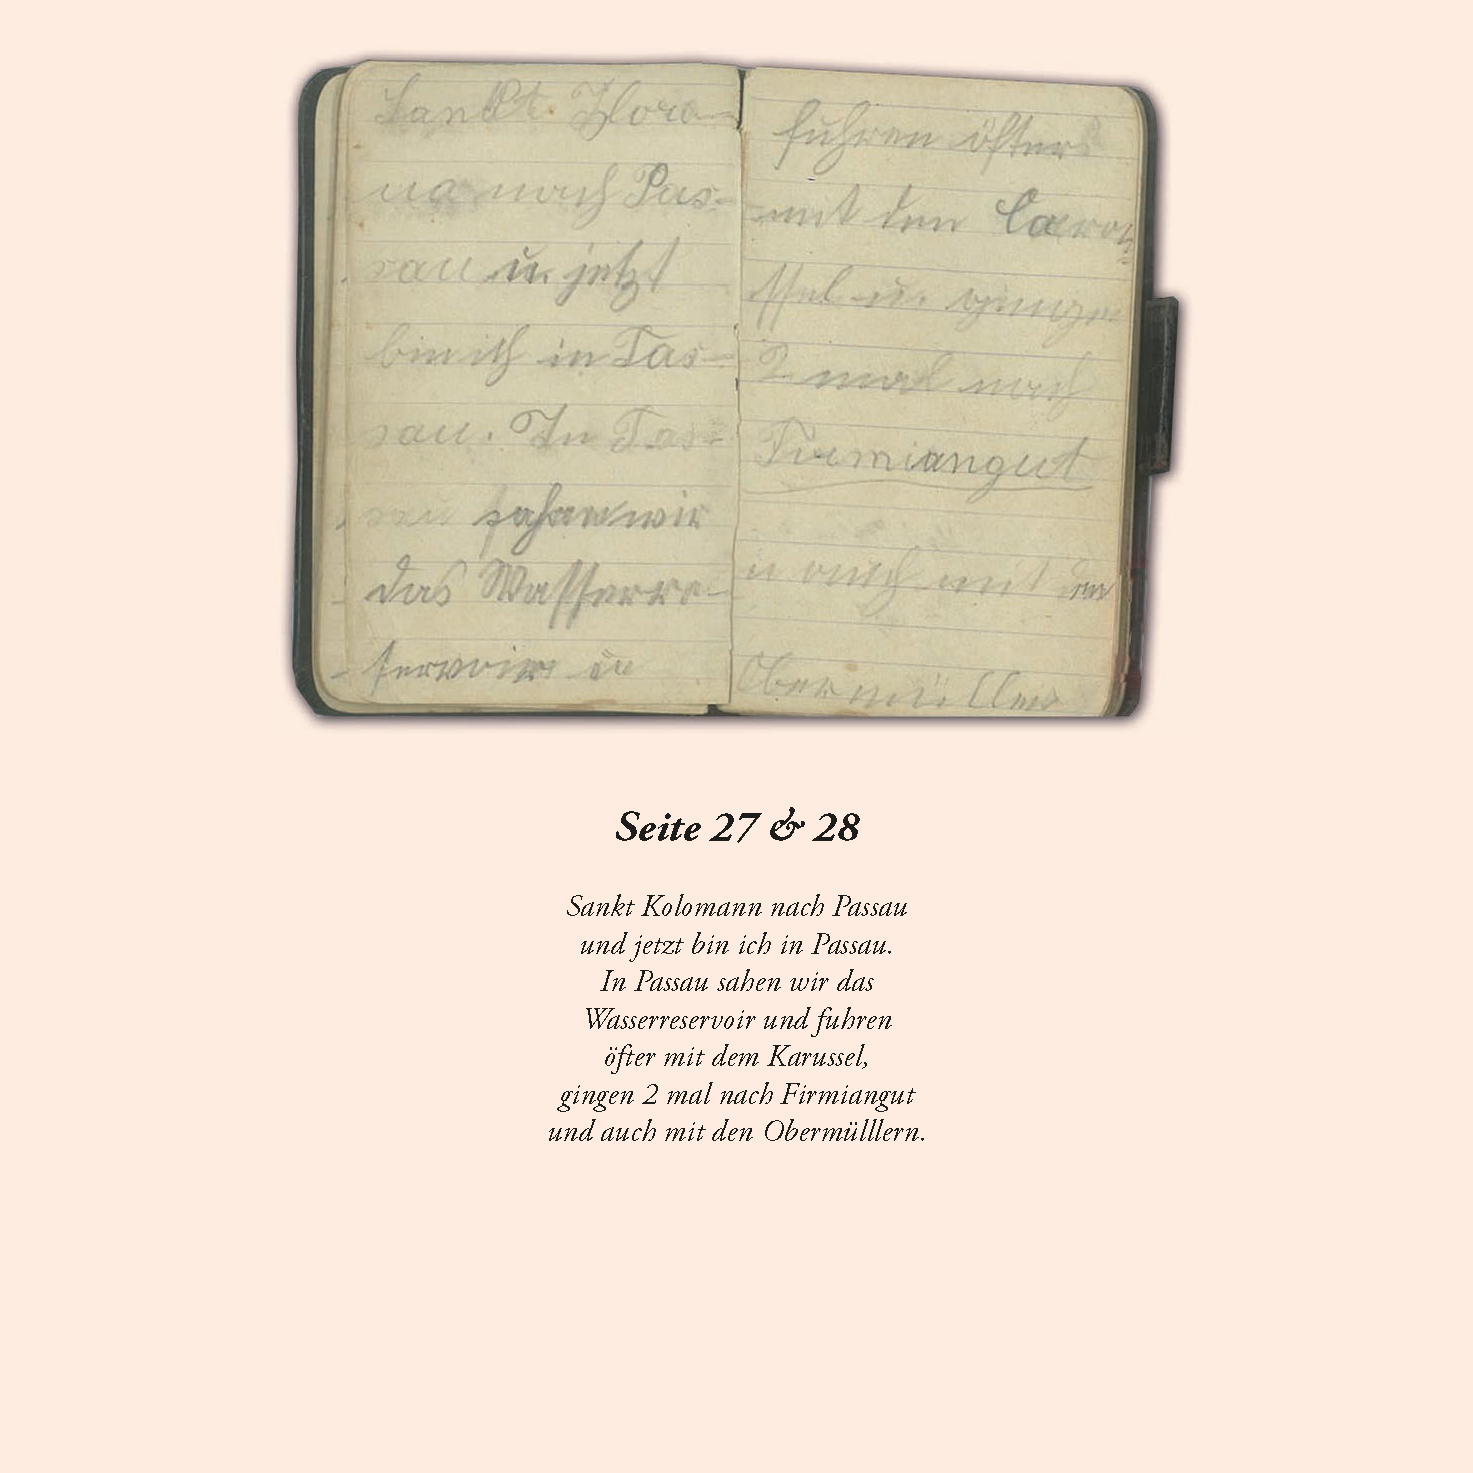 Sankt. Flora-
na nach Pas-
sau u. jetzt
bin ich in Pas-
sau. In Pas-
sau sahen wir
das Wasserre-
servoir u
fuhren öfters
mit den Carou-
ssel u. gingen
2 mal nach
Firmiangut
u auch mit den
Obermüllers
Seite 27 & 28
Sankt Kolomann nach Passau
und jetzt bin ich in Passau.
In Passau sahen wir das
Wasserreservoir und fuhren
öfter mit dem Karussel,
gingen 2 mal nach Firmiangut
und auch mit den Obermülllern.